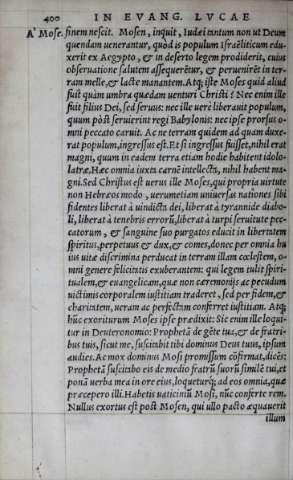 400 IN EVANG. LVCAE
A' Mose. finem nescit. Mosen, inquit, Iudæi tantum non ut Deum
quendam uenerantur, quòd is populum Israëliticum edu-
xerit ex Aegypto, & in deserto legem prodiderit, cuius
obseruatione salutem assequerētur, & peruenirēt in ter-
ram melle, & lacte manantem. Atq; iste Moses quid aliud
fuit quàm umbra quædam uenturi Christi? Nec enim ille
fuit filius Dei, sed seruus: nec ille uerè liberauit populum,
quum pòst seruierint regi Babylonis: nec ipse prorsus o-
mni peccato caruit. Ac ne terram quidem ad quam duxe-
rat populum, ingressus est. Et si ingressus fuisset, nihil erat
magni, quum in eadem terra etiam hodie habitent idolo-
latræ. Hæc omnia iuxta carnē intellecta, nihil habent ma-
gni. Sed Christus est uerus ille Moses, qui propria uirtute
non Hebræos modo, uerumetiam uniuersas nationes sibi
fidentes liberat à uindicta dei, liberat à tyrannide diabo-
li, liberat à tenebris errorū, liberat à turpi seruitute pec-
catorum, & sanguine suo purgatos educit in libertatem
spiritus, perpetuus & dux, & comes, donec per omnia hu
ius uitæ discrimina perducat in terram illam cœlestem, o-
mni genere felicitatis exuberantem: qui legem tulit spiri-
tualem, & euangelicam, quæ non cæremonijs ac pecudum
uictimis corporalem iustitiam traderet, sed per fidem, &
charitatem, ueram ac perfectam conferret iustitiam. Atq;
hūc exoriturum Moses ipse prædixit: Sic enim ille loqui-
tur in Deuteronomio: Prophetā de gēte tua, & de fratri-
bus tuis, sicut me, suscitabit tibi dominus Deus tuus, ipsum
audies. Ac mox dominus Mosi promissum cōfirmat, dicēs:
Prophetā suscitabo eis de medio fratrū suorū similē tui, et
ponā uerba mea in ore eius, loqueturq; ad eos omnia, quæ
præcepero illi. Habetis uaticiniū Mosi, nūc conferte rem.
Nullus exortus est post Mosen, qui ullo pacto æquauerit
illum